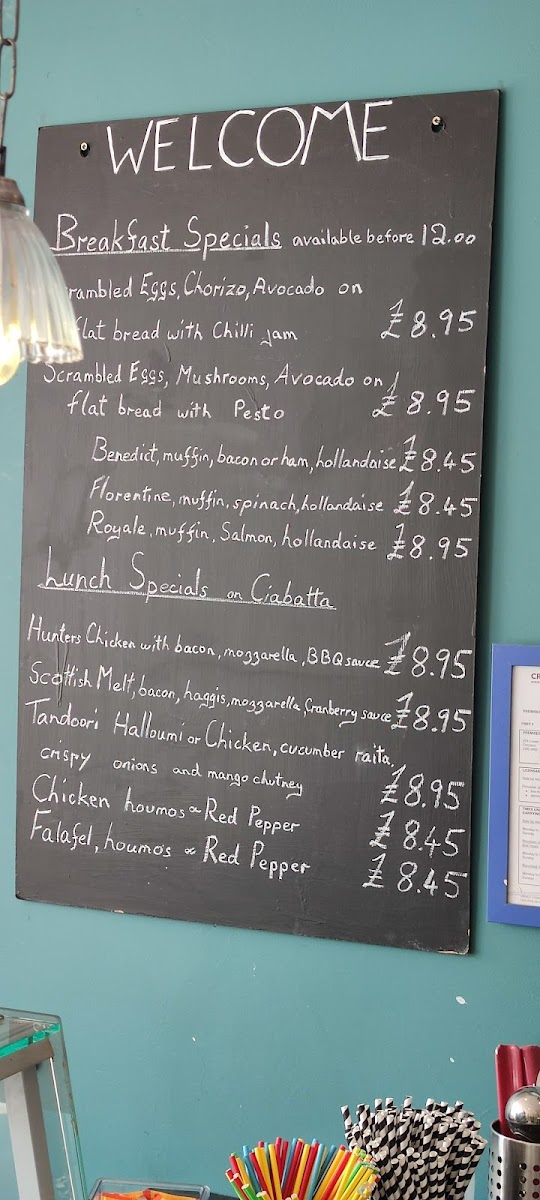 WELCOME
Breakfast Specials available before 12.00
rambled Eggs, Chorizo, Avocado on
flat bread with Chilli jam £8.95
Scrambled Eggs, Mushrooms, Avocado on
flat bread with Pesto £8.95
Benedict, muffin, bacon or ham, hollandaise £8.45
Florentine, muffin, spinach, hollandaise £8.45
Royale, muffin, Salmon, hollandaise £8.95
Lunch Specials on Ciabatta
Hunters Chicken with bacon, mozzarella, BBQ sauce £8.95
Scottish Melt, bacon, haggis, mozzarella, Cranberry sauce £8.95
Tandoori Halloumi or Chicken, cucumber raita,
crispy onions and mango chutney £8.95
Chicken houmos & Red Pepper £8.45
Falafel, houmos & Red Pepper £8.45